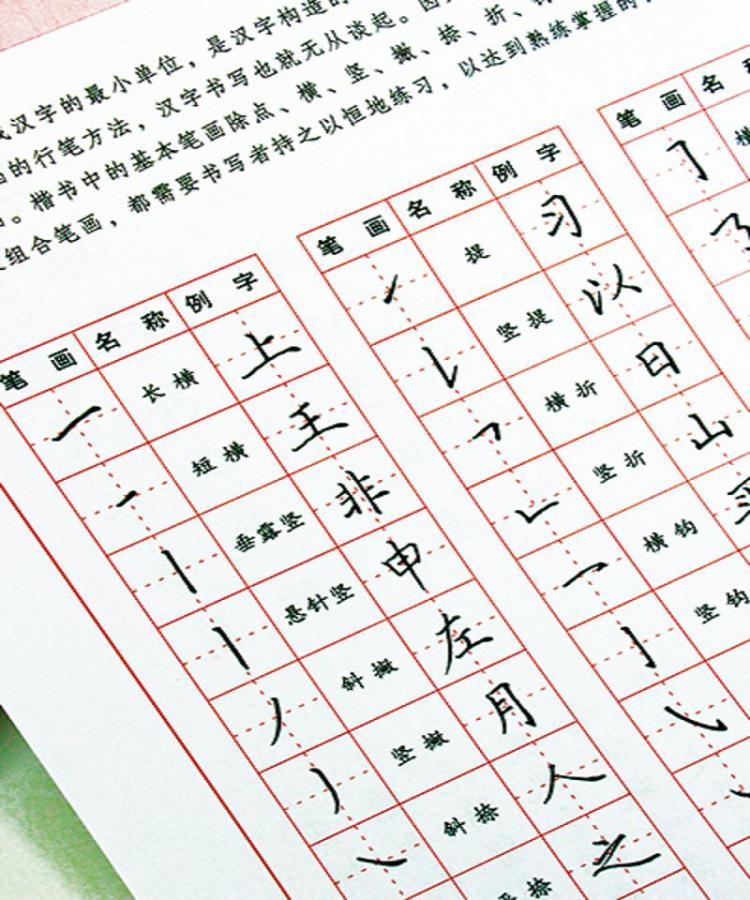 汉字的最小单位，是汉字构造的
的行笔方法，汉字书写也就无从谈起。
。楷书中的基本笔画除点、横、竖、撇、捺、折、
组合笔画，都需要书写者持之以恒地练习，以达到熟练掌握的
笔画 名称 例字
一 长横 上
短横 王
垂露竖 非
悬针竖 申
斜撇 左
竖撇 月
斜捺 人
捺 之
笔画 名称 例字
提 习
竖提 以
横折 日
竖折 山
横钩 买
竖钩
笔画 名